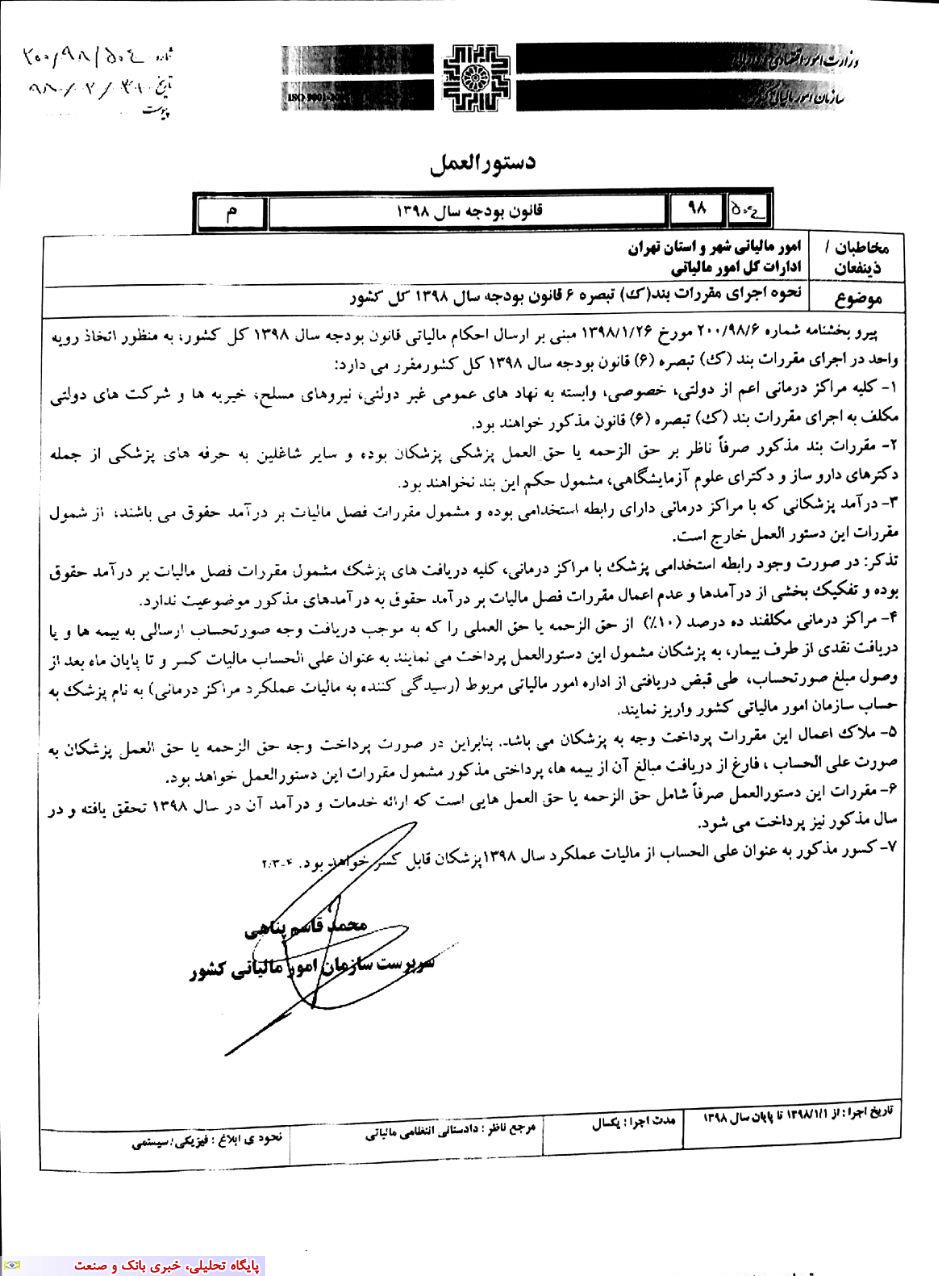 وزارت امور اقتصادی و دارایی
سازمان امور مالیاتی کشور
شماره ۲۰۰/۹۸/۵۰۴
تاریخ
پیوست
دستورالعمل
۵۰۴ ۹۸ قانون بودجه سال ۱۳۹۸ م
مخاطبان / امور مالیاتی شهر و استان تهران
ذینفعان ادارات کل امور مالیاتی
موضوع نحوه اجرای مقررات بند(ک) تبصره ۶ قانون بودجه سال ۱۳۹۸ کل کشور
پیرو بخشنامه شماره ۲۰۰/۹۸/۶ مورخ ۱۳۹۸/۱/۲۶ مبنی بر ارسال احکام مالیاتی قانون بودجه سال ۱۳۹۸ کل کشور، به منظور اتخاذ رویه
واحد در اجرای مقررات بند (ک) تبصره (۶) قانون بودجه سال ۱۳۹۸ کل کشورمقرر می دارد:
۱- کلیه مراکز درمانی اعم از دولتی، خصوصی، وابسته به نهاد های عمومی غیر دولتی، نیروهای مسلح، خیریه ها و شرکت های دولتی
مکلف به اجرای مقررات بند (ک) تبصره (۶) قانون مذکور خواهند بود.
۲- مقررات بند مذکور صرفاً ناظر بر حق الزحمه یا حق العمل پزشکی پزشکان بوده و سایر شاغلین به حرفه های پزشکی از جمله
دکترهای دارو ساز و دکترای علوم آزمایشگاهی، مشمول حکم این بند نخواهند بود.
۳- درآمد پزشکانی که با مراکز درمانی دارای رابطه استخدامی بوده و مشمول مقررات فصل مالیات بر درآمد حقوق می باشند، از شمول
مقررات این دستور العمل خارج است.
تذکر: در صورت وجود رابطه استخدامی پزشک با مراکز درمانی، کلیه دریافت های پزشک مشمول مقررات فصل مالیات بر درآمد حقوق
بوده و تفکیک بخشی از درآمدها و عدم اعمال مقررات فصل مالیات بر درآمد حقوق به درآمدهای مذکور موضوعیت ندارد.
۴- مراکز درمانی مکلفند ده درصد (۱۰٪) از حق الزحمه یا حق العملی را که به موجب دریافت وجه صورتحساب ارسالی به بیمه ها و یا
دریافت نقدی از طرف بیمار، به پزشکان مشمول این دستورالعمل پرداخت می نمایند به عنوان علی الحساب مالیات کسر و تا پایان ماه بعد از
وصول مبلغ صورتحساب، طی قبض دریافتی از اداره امور مالیاتی مربوط (رسیدگی کننده به مالیات عملکرد مراکز درمانی) به نام پزشک به
حساب سازمان امور مالیاتی کشور واریز نمایند.
۵- ملاک اعمال این مقررات پرداخت وجه به پزشکان می باشد. بنابراین در صورت پرداخت وجه حق الزحمه یا حق العمل پزشکان به
صورت علی الحساب ، فارغ از دریافت مبالغ آن از بیمه ها، پرداختی مذکور مشمول مقررات این دستورالعمل خواهد بود.
۶- مقررات این دستورالعمل صرفاً شامل حق الزحمه یا حق العمل هایی است که ارائه خدمات و درآمد آن در سال ۱۳۹۸ تحقق یافته و در
سال مذکور نیز پرداخت می شود.
۷- کسور مذکور به عنوان علی الحساب از مالیات عملکرد سال ۱۳۹۸پزشکان قابل کسر خواهد بود.
محمد قاسم پناهی
سرپرست سازمان امور مالیاتی کشور
تاریخ اجرا : از ۱۳۹۸/۱/۱ تا پایان سال ۱۳۹۸ مدت اجرا : یکسال مرجع ناظر : دادستانی انتظامی مالیاتی نحوه ی ابلاغ : فیزیکی/سیستمی
پایگاه تحلیلی، خبری بانک و صنعت